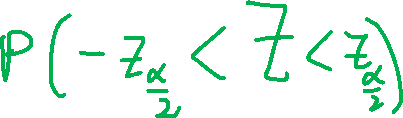 P(-z_{\frac{\alpha}{2}} < Z < z_{\frac{\alpha}{2}})